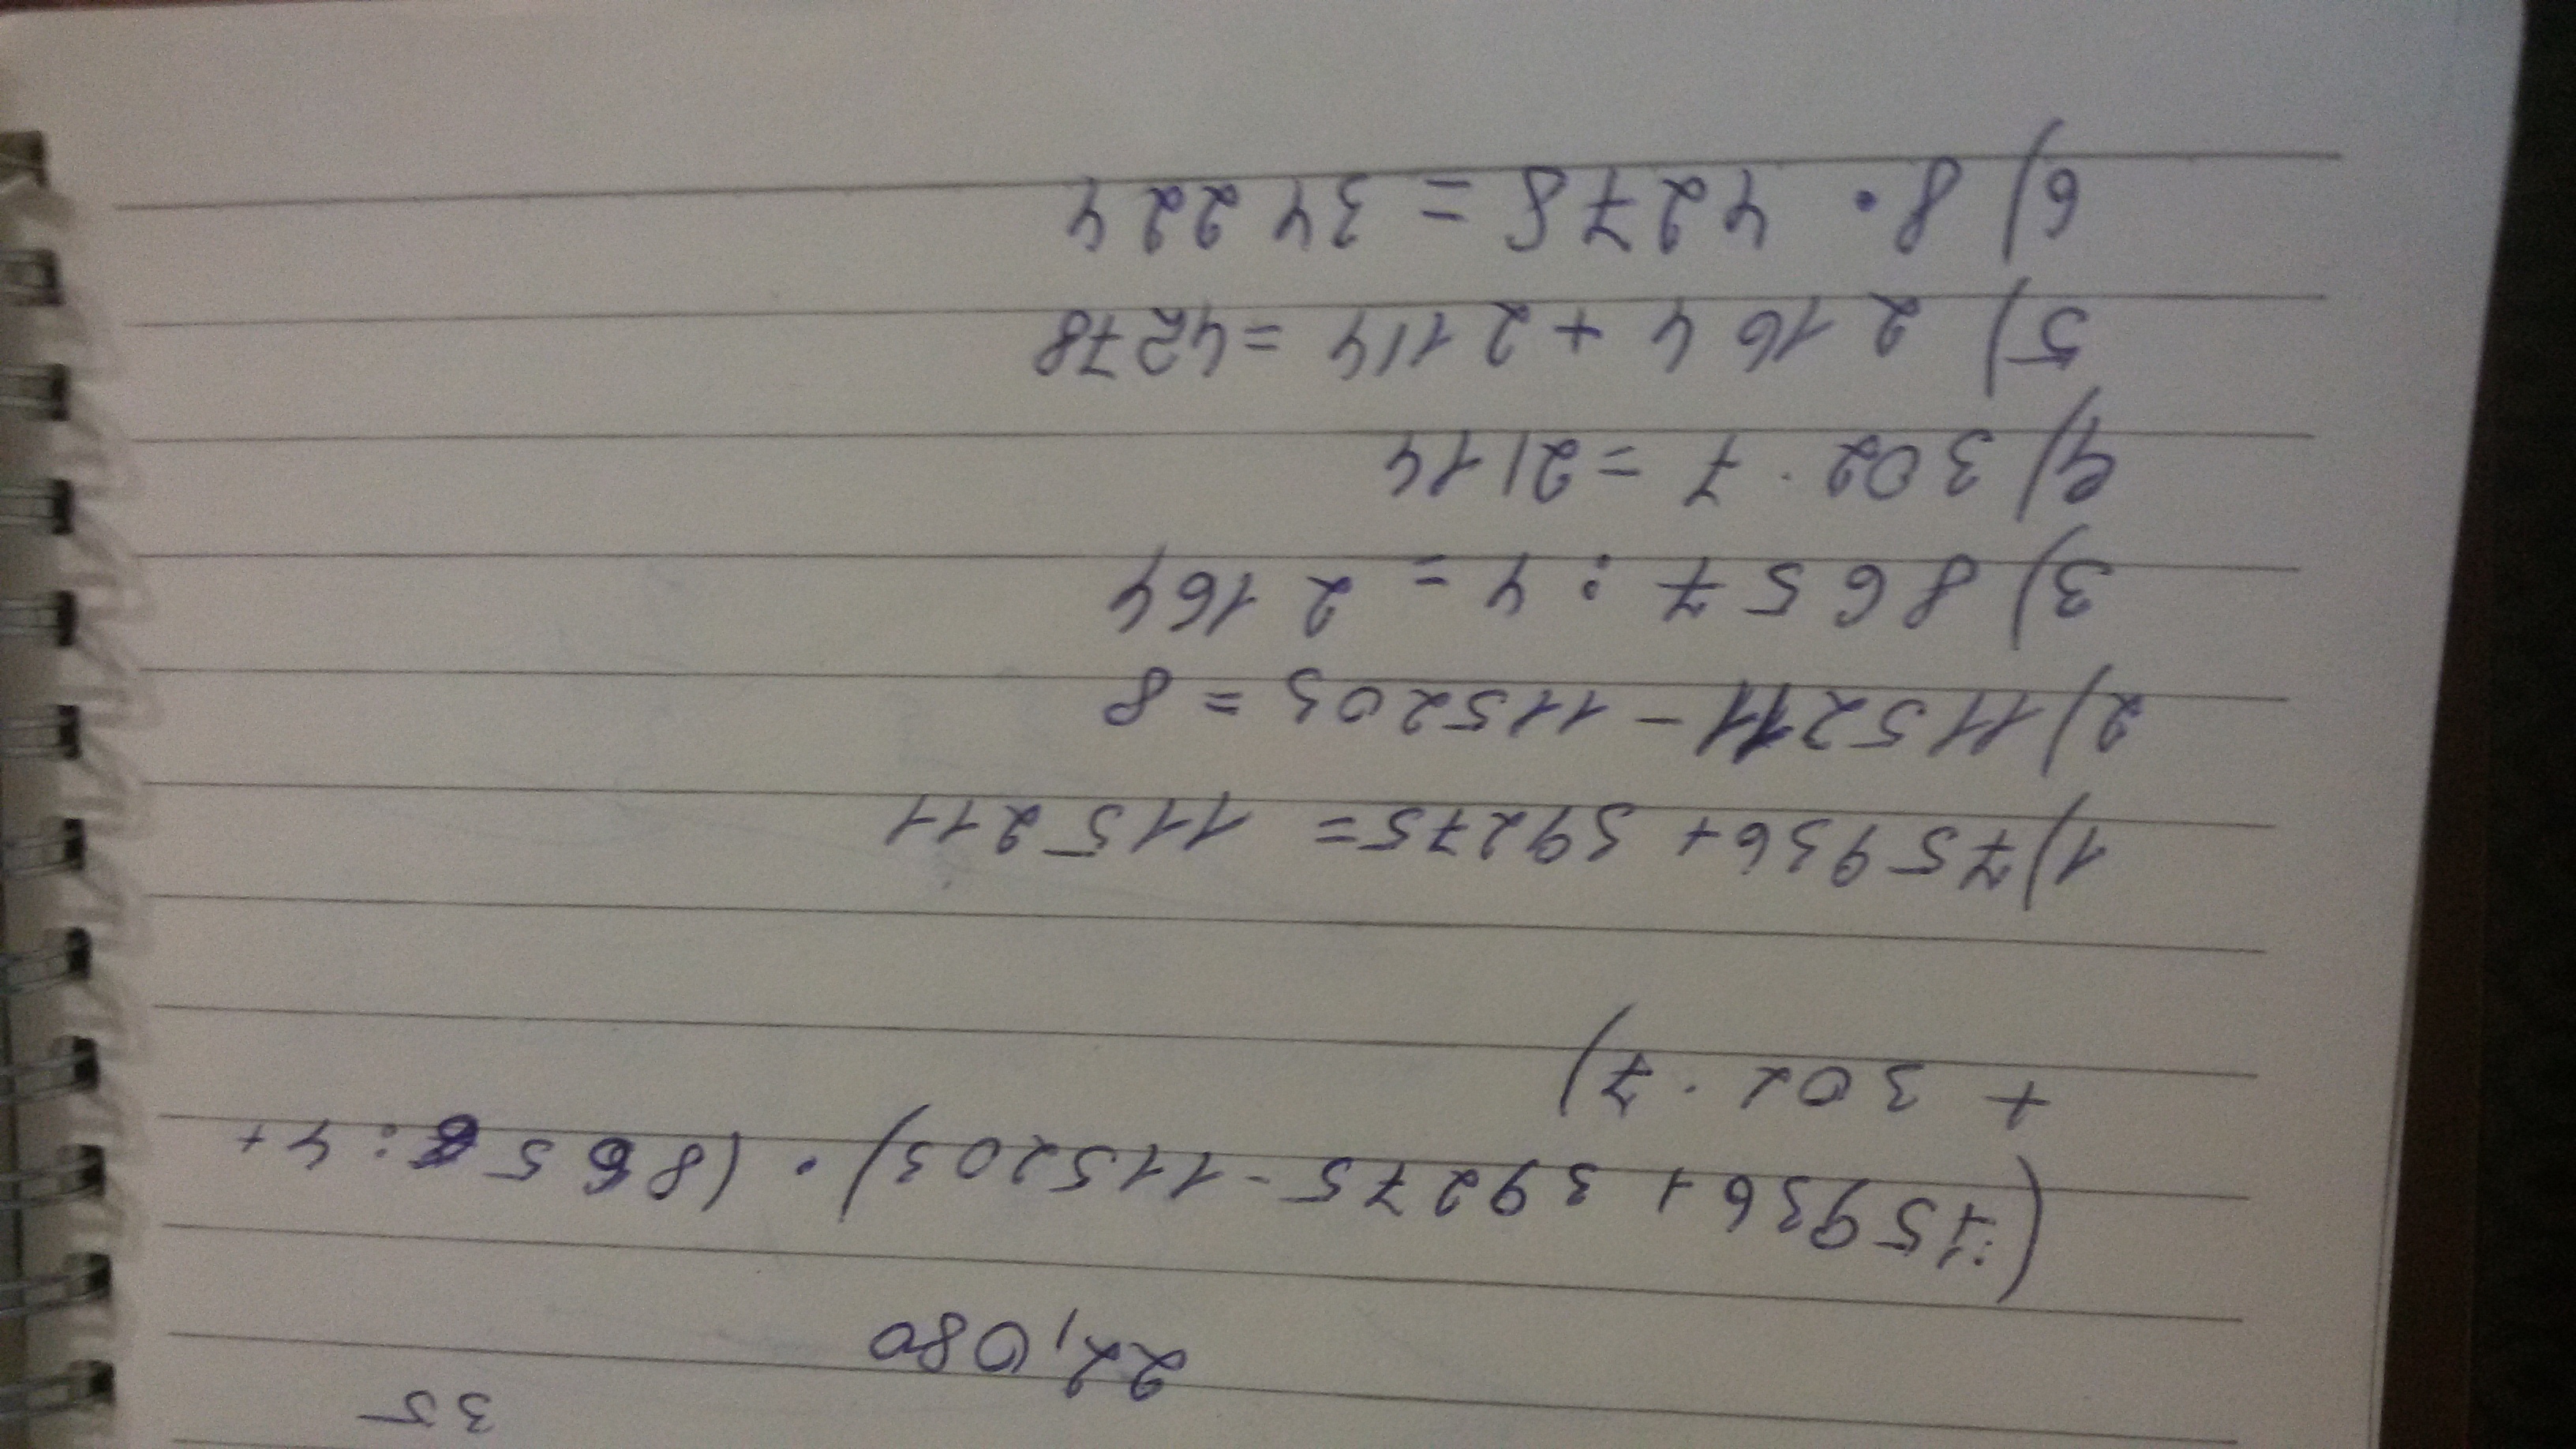 35
22,080
(75936+39275-115203)·(8656:4+
+ 302·7)
1) 75936+39275= 115211
2) 115211-115203=8
3) 8657:4=2164
4) 302·7=2114
5) 2164+2114=4278
6) 8·4278=34224